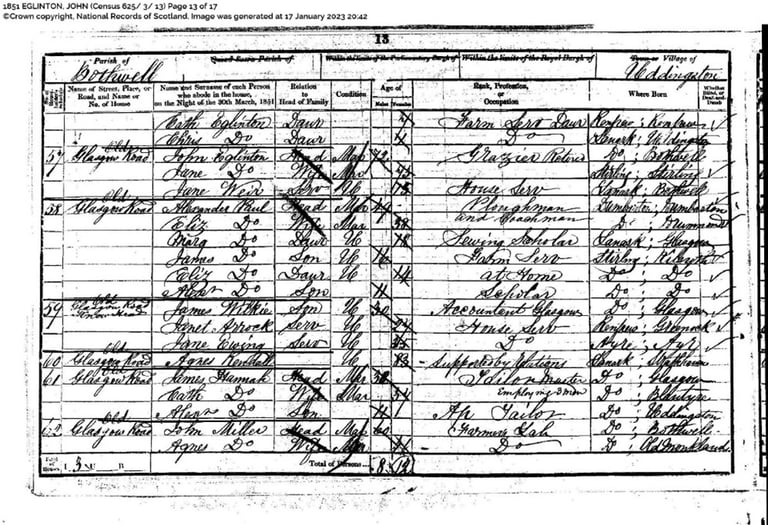 1851 EGLINTON, JOHN (Census 625/ 3/ 13) Page 13 of 17
©Crown copyright, National Records of Scotland. Image was generated at 17 January 2023 20:42
13
Parish of Bothwell
Quoad Sacra Parish of
Within the limits of the Parliamentary Burgh of
Within the limits of the Royal Burgh of
Town or Village of Uddingston
Name of Street, Place, or Road, and Name or No. of House
Name and Surname of each Person who abode in the house, on the Night of the 30th March, 1851
Relation to Head of Family
Condition
Age of
Males
Females
Rank, Profession, or Occupation
Where Born
Whether Blind, or Deaf-and-Dumb
Cath Eglinton Daur Farm Serv Daur Renfrew;
Chris Do Daur 4 Do Lanark;
57 Old Glasgow Road John Eglinton Head Mar 72 Grazier Do; Bothwell
Jane Do Wife Mar Stirling; Stirling
Jane Weir Serv U 18 House Serv Lanark; Bothwell
58 Old Glasgow Road Alexander Head Mar 49 Ploughman and Coachman Dumbarton; Dumbarton
Eliz Do Wife Mar 38 D;
Marg Do Daur U 18 Sewing Scholar Lanark; Glasgow
James Do Son U 16 Farm Serv Stirling; Kilsyth
Eliz Do Daur U 14 at Home Do; Do
Alexr Do Son 11 Scholar Do Do
59 Old Glasgow Road James Wilkie Son U 30 Accountant Glasgow Do; Glasgow
Janet Serv U 24 House Serv Renfrew; Greenock
Jane Ewing Serv U 35 Do Ayre; Ayr
60 Old Glasgow Road Agnes Kendall U 83 Supported by Lanark;
61 Old Glasgow Road James Hannah Head Mar 38 Tailor Master Employing 3 men Do; Glasgow
Cath Do Wife Mar 34 Do; Blantyre
Do Son 11 Ap Tailor Do Uddingston
62 Old Glasgow Road John Miller Head Mar 60 Farmer Do; Bothwell
Agnes Do Wife Mar Do D; Old Monkland
Total of Houses
Total of Persons 8 12